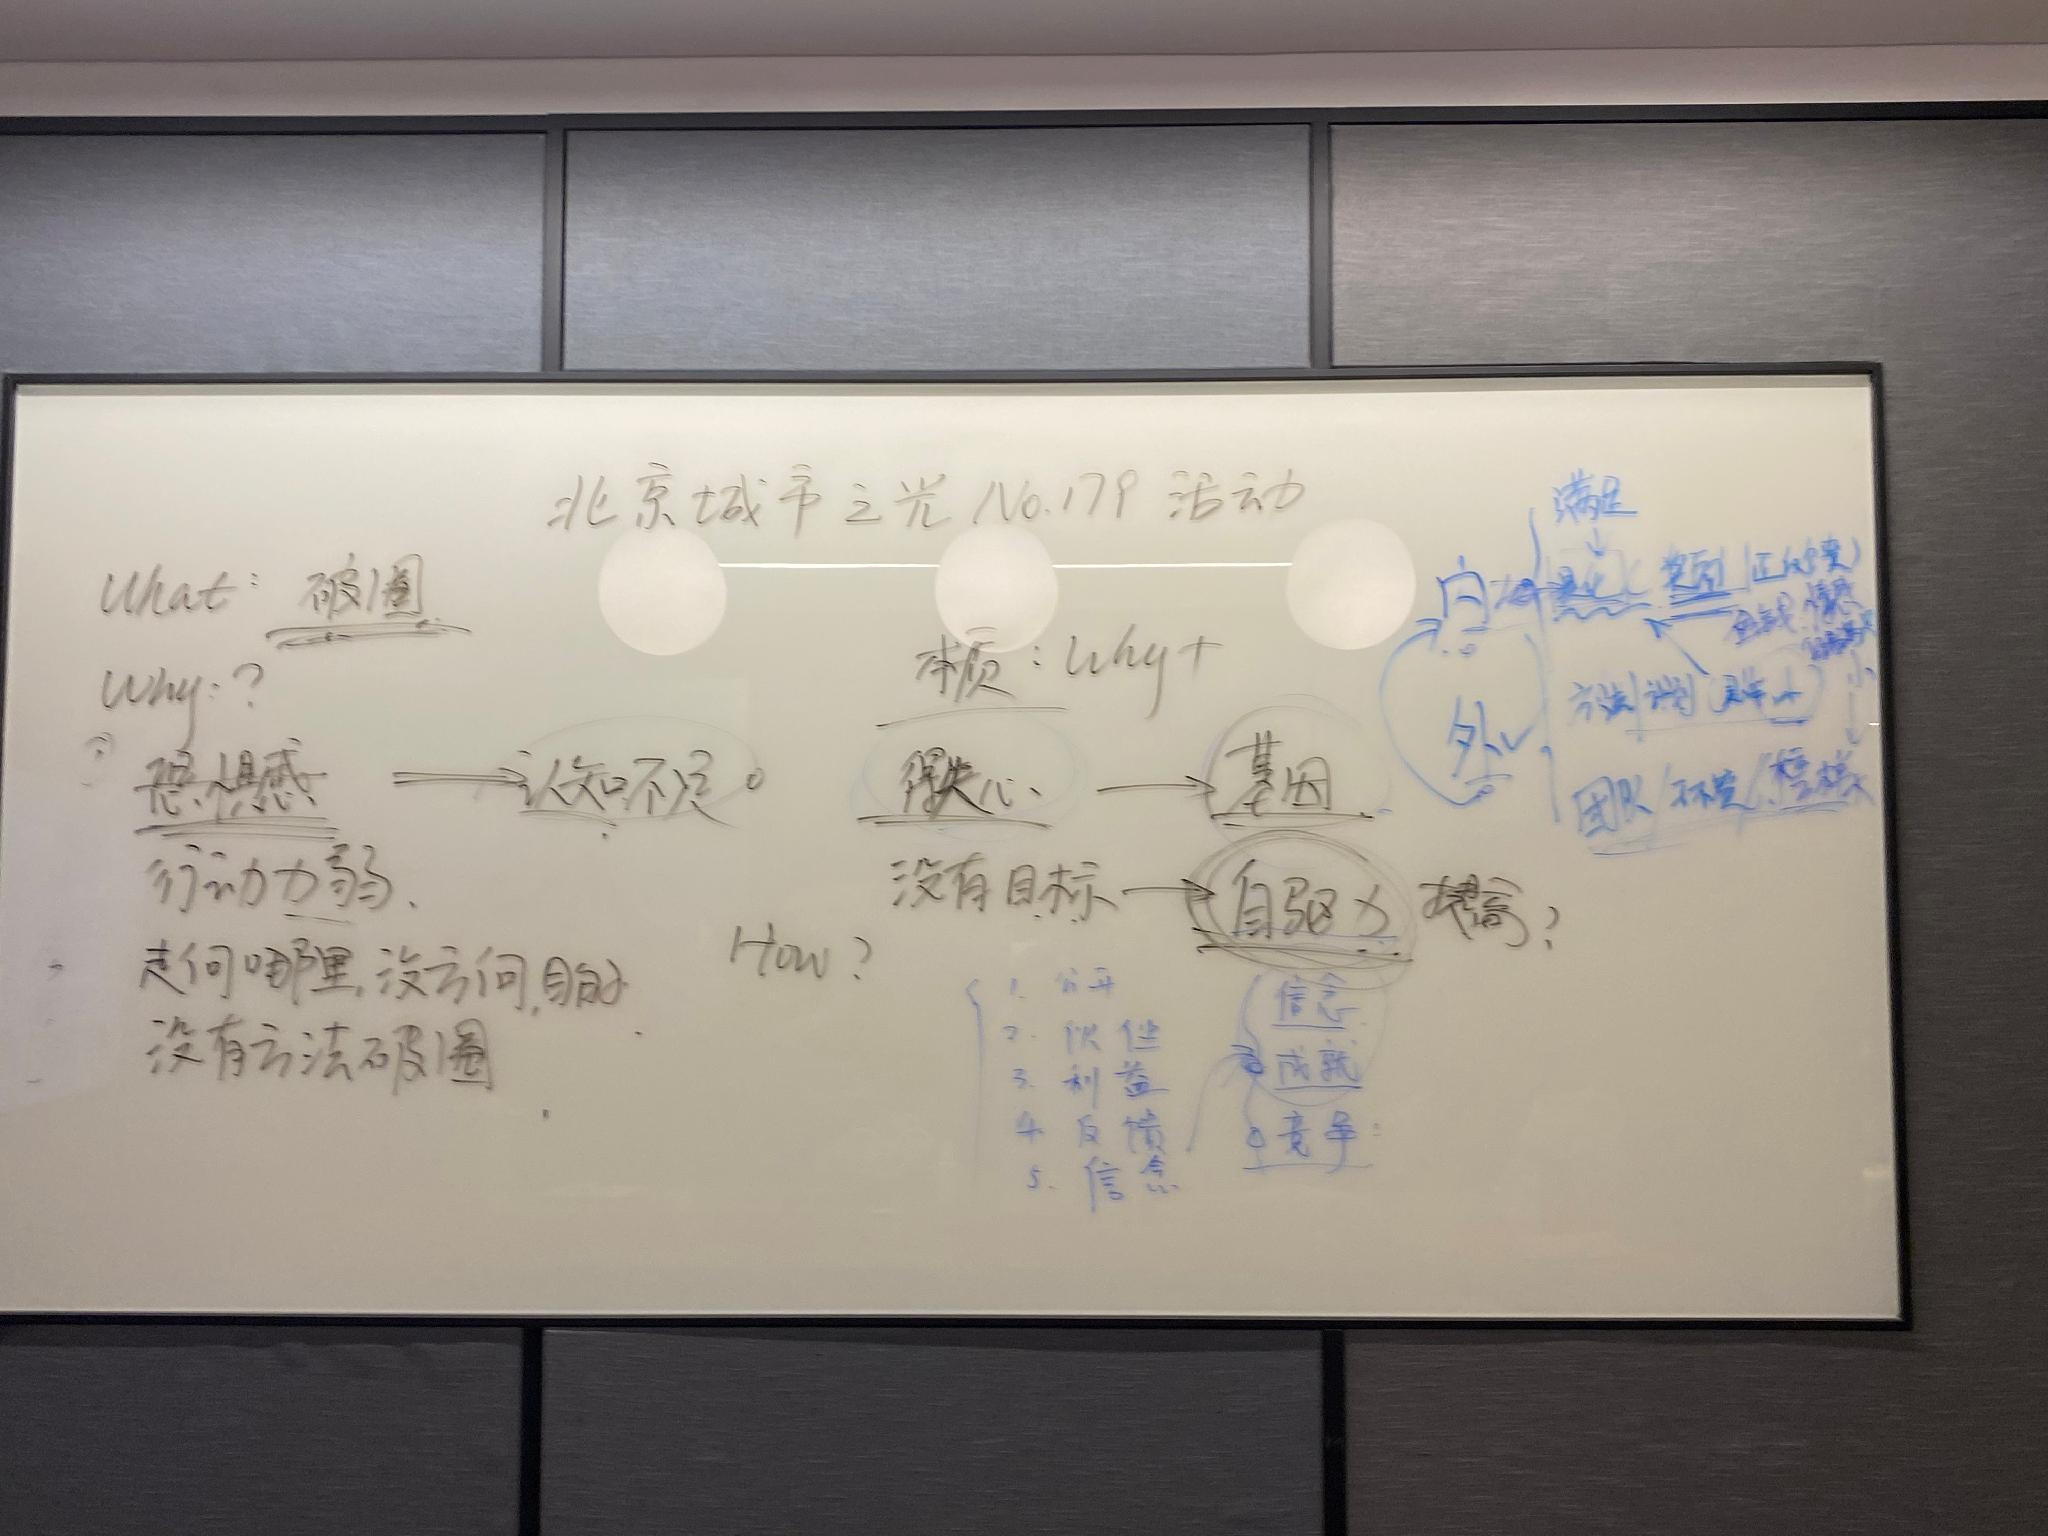 北京城市之光 No.179 活动
What: 破圈
Why:?
恐惧感 → 认知不足
行动力弱.
走向哪里,没方向,目的
没有方法破圈
本质: Why+
得失心 → 基因
没有目标 → 自驱力 提高?
How?
1. 公开
2. 伙伴
3. 利益
4 反馈
5. 信念
信念
成就
竞争
满足
内
量化 奖励 正
外
方法
团队 环境 榜样